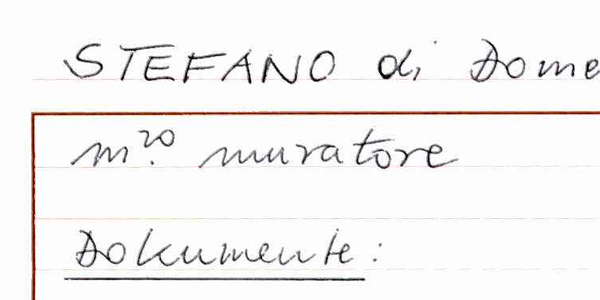 STEFANO di Dome
m.ro muratore
Dokumente: